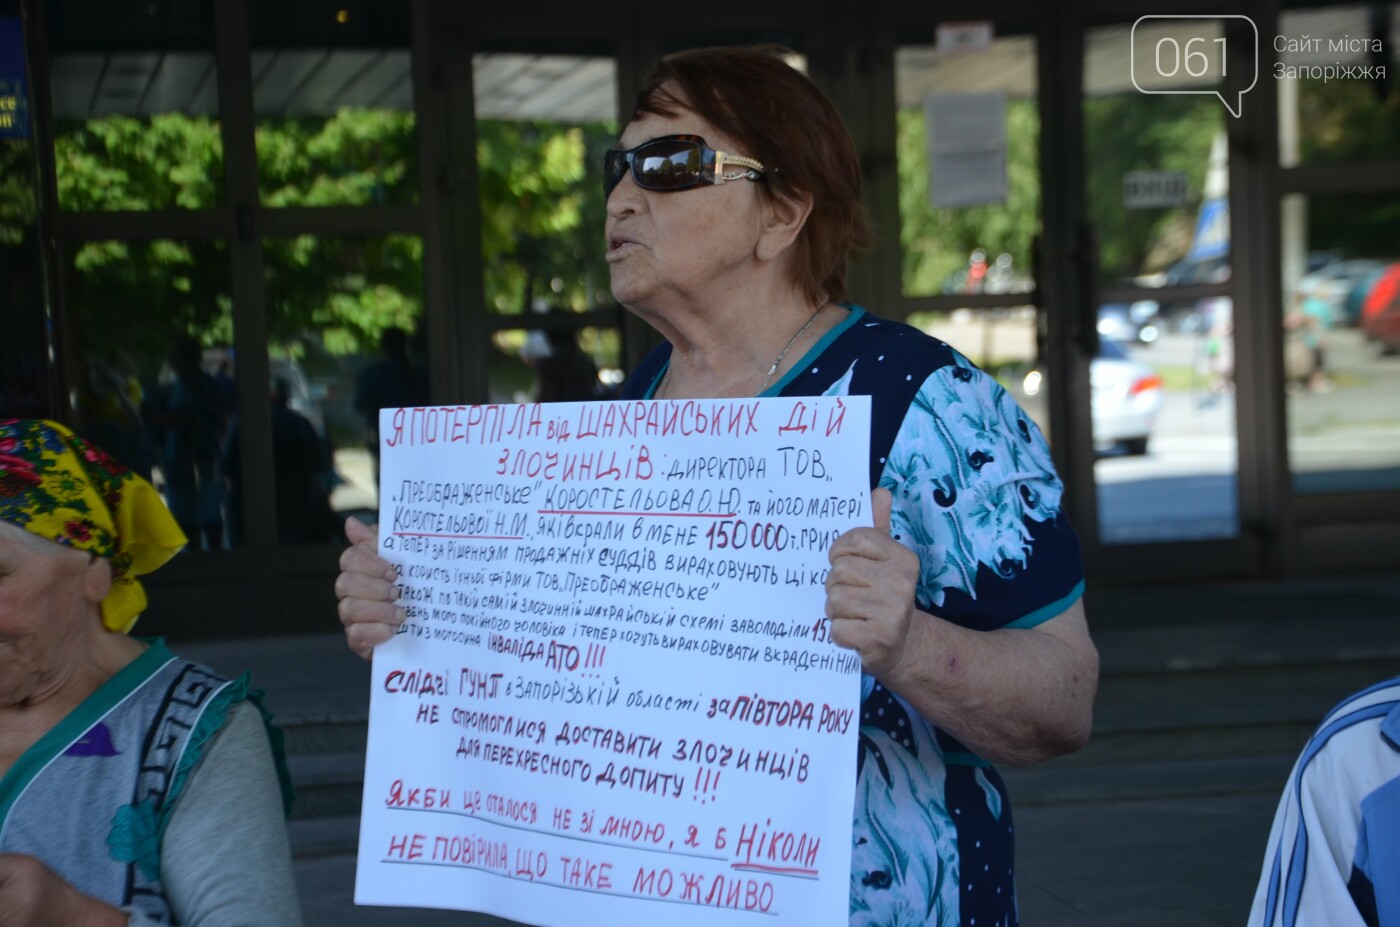 061
Сайт міста
Запоріжжя
Я ПОТЕРПІЛА від ШАХРАЙСЬКИХ ДІЙ
ЗЛОЧИНЦІВ: ДИРЕКТОРА ТОВ„
„ПРЕОБРАЖЕНСЬКЕ" КОРОСТЕЛЬОВА О.Ю. ТА ЙОГО МАТЕРІ
КОРОСТЕЛЬОВОЇ Н.М., ЯКІ ВКРАЛИ В МЕНЕ 150 000 т. ГРИВ
А ТЕПЕР ЗА РІШЕННЯМ ПРОДАЖНІХ СУДДІВ ВИРАХОВУЮТЬ ЦІ
НА КОРИСТЬ ЇХНЬОЇ ФІРМИ ТОВ „ПРЕОБРАЖЕНСЬКЕ"
ТАКОЖ ПО ТАКІЙ САМІЙ ЗЛОЧИННІЙ ШАХРАЙСЬКІЙ СХЕМІ ЗАВОЛОДІЛИ
МОГО ПОКІЙНОГО ЧОЛОВІКА І ТЕПЕР ХОЧУТЬ ВИРАХОВУВАТИ ВКРАДЕНІ НИМИ
З МОГО СИНА ІНВАЛІДА АТО!!!
СЛІДЧІ ГУНП в ЗАПОРІЗЬКІЙ області за ПІВТОРА РОКУ
НЕ СПРОМОГЛИСЯ ДОСТАВИТИ ЗЛОЧИНЦІВ
ДЛЯ ПЕРЕХРЕСНОГО ДОПИТУ!!!
ЯКБИ ЦЕ СТАЛОСЯ НЕ ЗІ МНОЮ, Я Б НІКОЛИ
НЕ ПОВІРИЛА, ЩО ТАКЕ МОЖЛИВО